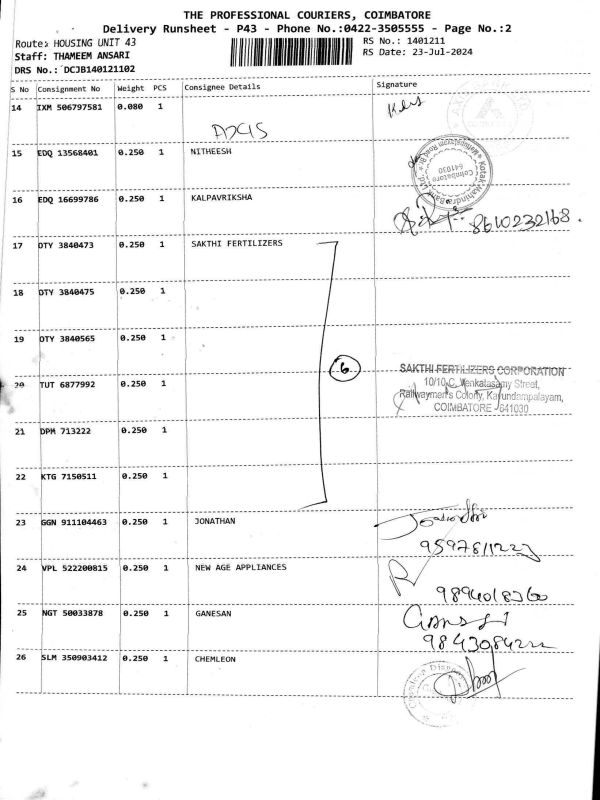 THE PROFESSIONAL COURIERS, COIMBATORE
Delivery Runsheet - P43 - Phone No.:0422-3505555 - Page No.:2
Route: HOUSING UNIT 43
RS No.: 1401211
Staff: THAMEEM ANSARI
RS Date: 23-Jul-2024
DRS No.: DCJB140121102
S No Consignment No Weight PCS Consignee Details Signature
14 IXM 506797581 0.080 1
15 EDQ 13568401 0.250 1 NITHEESH
Kotak Mahindra Bank Ltd.
Coimbatore
641030
16 EDQ 16699786 0.250 1 KALPAVRIKSHA
8610232168.
17 OTY 3840473 0.250 1 SAKTHI FERTILIZERS
18 OTY 3840475 0.250 1
19 OTY 3840565 0.250 1
6
20 TUT 6877992 0.250 1
SAKTHI FERTILIZERS CORPORATION
10/10 C, Venkatasamy Street,
Railwaymen's Colony, Kavundampalayam,
COIMBATORE - 641030
21 DPM 713222 0.250 1
22 KTG 7150511 0.250 1
23 GGN 911104463 0.250 1 JONATHAN
24 VPL 522200815 0.250 1 NEW AGE APPLIANCES
25 NGT 50033878 0.250 1 GANESAN
26 SLM 350903412 0.250 1 CHEMLEON